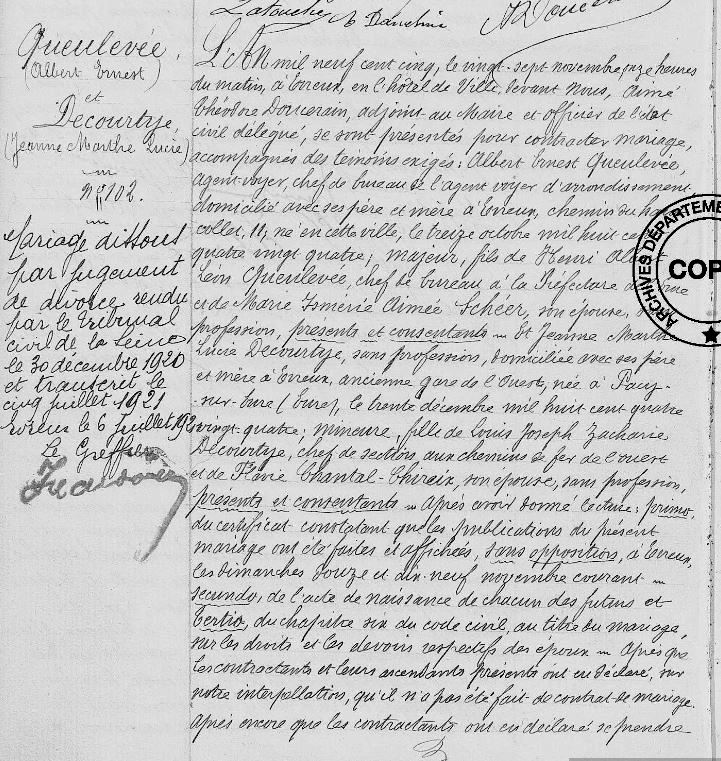 Latouche, A. Dauchin
Queulevée,
(Albert Ernest)
et
Decourtye,
(Jeanne Marthe Lucie)
N° 102.
Mariage dissous
par jugement
de divorce rendu
par le Tribunal
civil de la Seine
le 30 décembre 1920
et transcrit le
cinq juillet 1921
Evreux le 6 juillet 192
Le Greffier
L'AN mil neuf cent cinq, le vingt-sept novembre, onze heures
du matin, à Evreux, en l'hôtel de Ville, devant Nous, Aimé
Théodore Doucerain, adjoint au Maire et officier de l'état
civil délégué, se sont présentés pour contracter mariage,
accompagnés des témoins exigés: Albert Ernest Queulevée,
agent-voyer, chef de bureau de l'agent voyer d'arrondissement,
domicilié avec ses père et mère à Evreux, chemin du ha
collet, 11, né en cette ville, le treize octobre mil huit ce
quatre vingt quatre; majeur, fils de Henri Al
Léon Queulevée, chef de bureau à la Préfecture
et de Marie Ismérie Aimée Schéer, son épouse,
profession, présents et consentants — Et Jeanne Marthe
Lucie Decourtye, sans profession, domiciliée avec ses père
et mère à Evreux, ancienne gare de l'Ouest, née à Pacy-
-sur-Eure (Eure), le trente décembre mil huit cent quatre
vingt-quatre; mineure, fille de Louis Joseph Zacharie
Decourtye, chef de section aux chemins de fer de l'ouest
et de Flavie Chantal Chireix, son épouse, sans profession,
présents et consentants — Après avoir donné lecture: primo,
du certificat constatant que les publications du présent
mariage ont été faites et affichées, sans opposition, à Evreux,
les dimanches douze et dix-neuf novembre courant —
secundo, de l'acte de naissance de chacun des futurs et
tertio, du chapitre six du code civil, au titre du mariage,
sur les droits et les devoirs respectifs des époux — Après que
les contractants et leurs ascendants présents ont eu déclaré, sur
notre interpellation, qu'il n'a pas été fait de contrat de mariage
Après encore que les contractants ont eu déclaré se prendre
ARCHIVES DÉPARTEME
COP